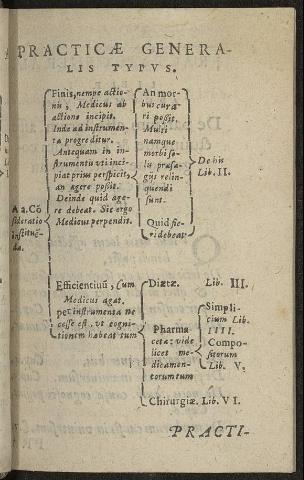 PRACTICÆ GENERA-
LIS TYPVS.
Finis, nempe actio-
nis, Medicus ab
actione incipit.
Inde ad instrumen-
ta progreditur.
Antequam in in-
strumentū vti inci-
piat prius perspicit,
an agere possit.
Deinde quid age-
re debeat. Sic ergo
Medicus perpendit.
An mor-
bus cura-
ri possit.
Multi
namque
morbi sa-
lu præsa-
gijs relin-
quendi
sunt.
Quid fie-
ri debeat
De his
Lib. II.
A 2. Cō
sideratio
instituē-
da.
Efficientiuū, Cum
Medicus agat,
per instrumenta ne-
cesse est, vt cogni-
tionem habeat tum
Diætæ. Lib. III.
Pharma
ceta: vide
licet me-
dicamen-
torum tum
Simpli-
cium Lib.
IIII.
Compo-
sitorum
Lib. V.
Chirurgiæ. Lib. VI.
PRACTI-